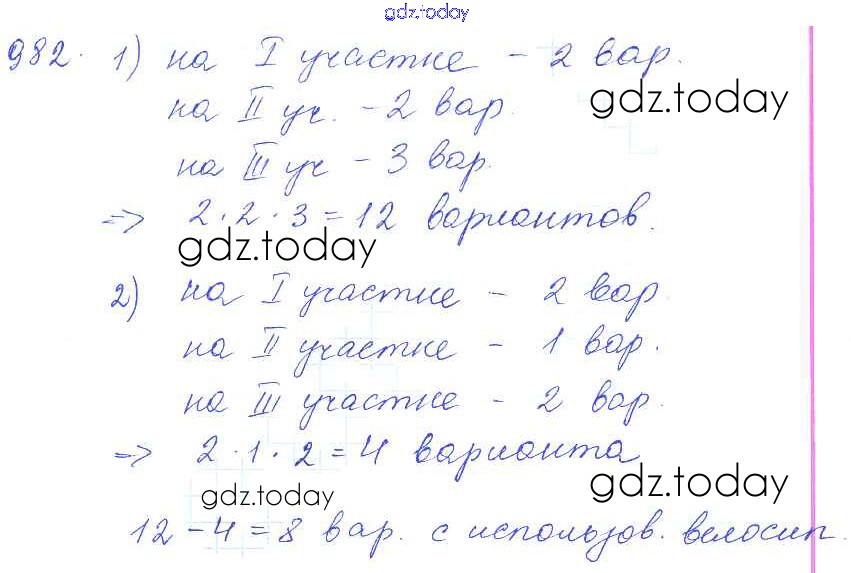 gdz.today
982. 1) на I участке - 2 вар.
gdz.today
на II уч. - 2 вар.
на III уч - 3 вар.
=> 2·2·3=12 вариантов.
gdz.today
2) на I участке - 2 вар
на II участке - 1 вар.
на III участке - 2 вар.
=> 2·1·2=4 варианта
gdz.today
gdz.today
12-4=8 вар. с использов. велосип.